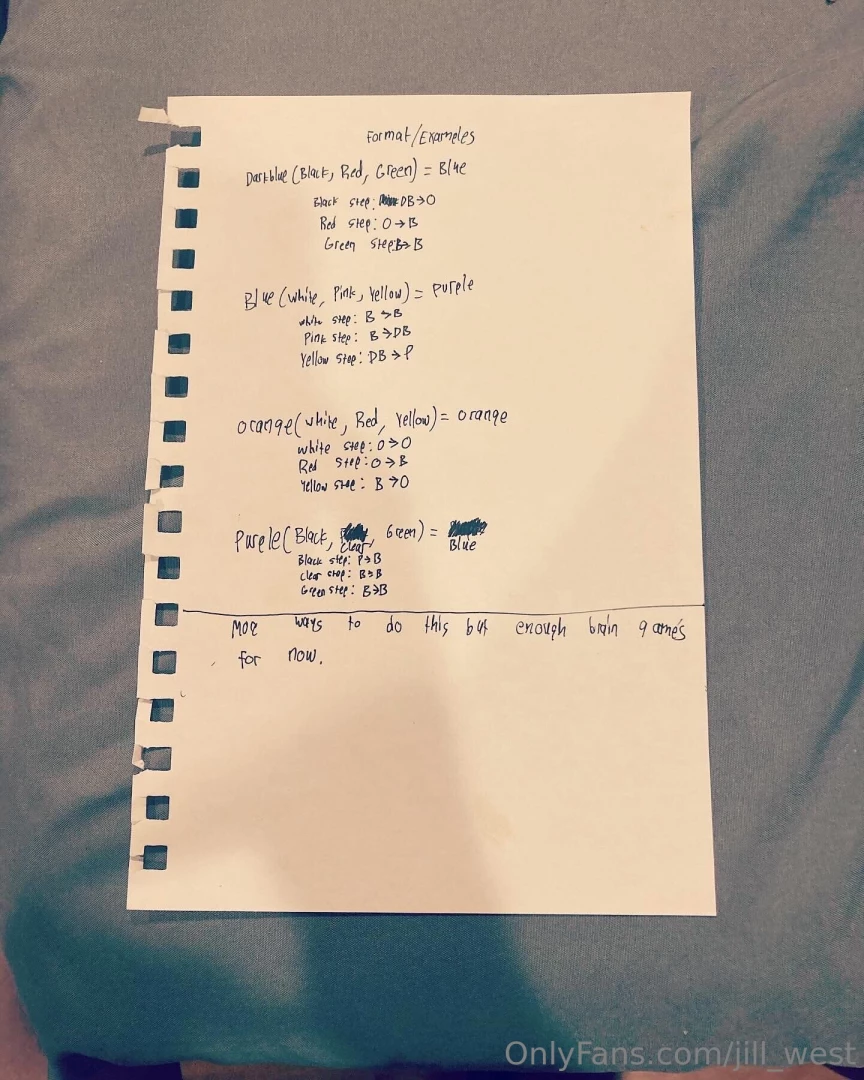 Format/Examples
Darkblue (Black, Red, Green) = Blue
Black step: DB→O
Red step: O→B
Green step: B→B
Blue (white, Pink, Yellow) = purple
white step: B→B
Pink step: B→DB
Yellow step: DB→P
orange (white, Red, Yellow) = orange
white step: O→O
Red step: O→B
Yellow step: B→O
Purple (Black, clear, Green) = Blue
Black step: P→B
clear step: B→B
Green step: B→B
ways to do this but enough brain games
for now.
OnlyFans.com/jill_west